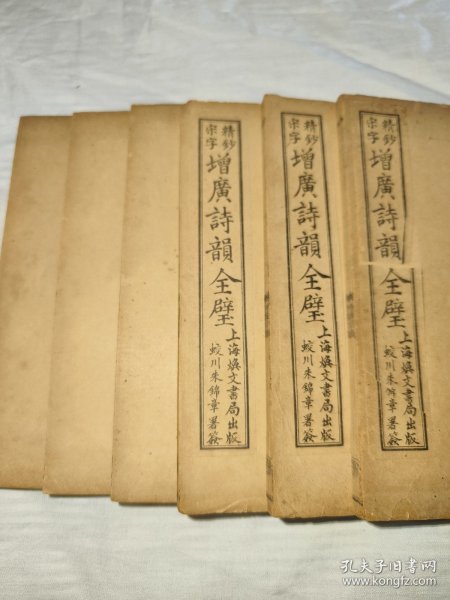 精鈔
宋字
增廣詩韻全璧
上海煥文書局出版
蛟川朱錦章署簽
精鈔
宋字
增廣詩韻全璧
上海煥文書局出版
蛟川朱錦章署簽
精鈔
宋字
增廣詩韻全璧
上海煥文書局出版
蛟川朱錦章署簽
孔夫子旧书网
www.kongfz.com